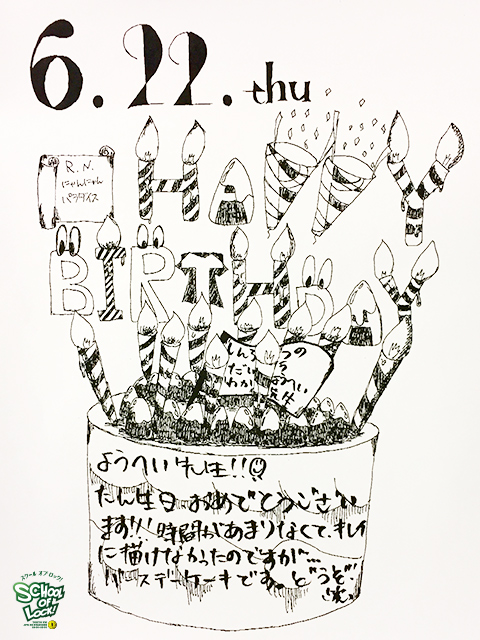 6.22.thu
R.N.
にゃんにゃん
パラダイス
HAPPY
BIRTHDAY
ようへい先生!!
たん生日おめでとうござい
ます!!!時間があまりなくて、キレイ
に描けなかったのですが…
バースデーケーキです。どうぞ
(笑)
スクール オブ ロック!
SCHOOL
OF
LOCK!